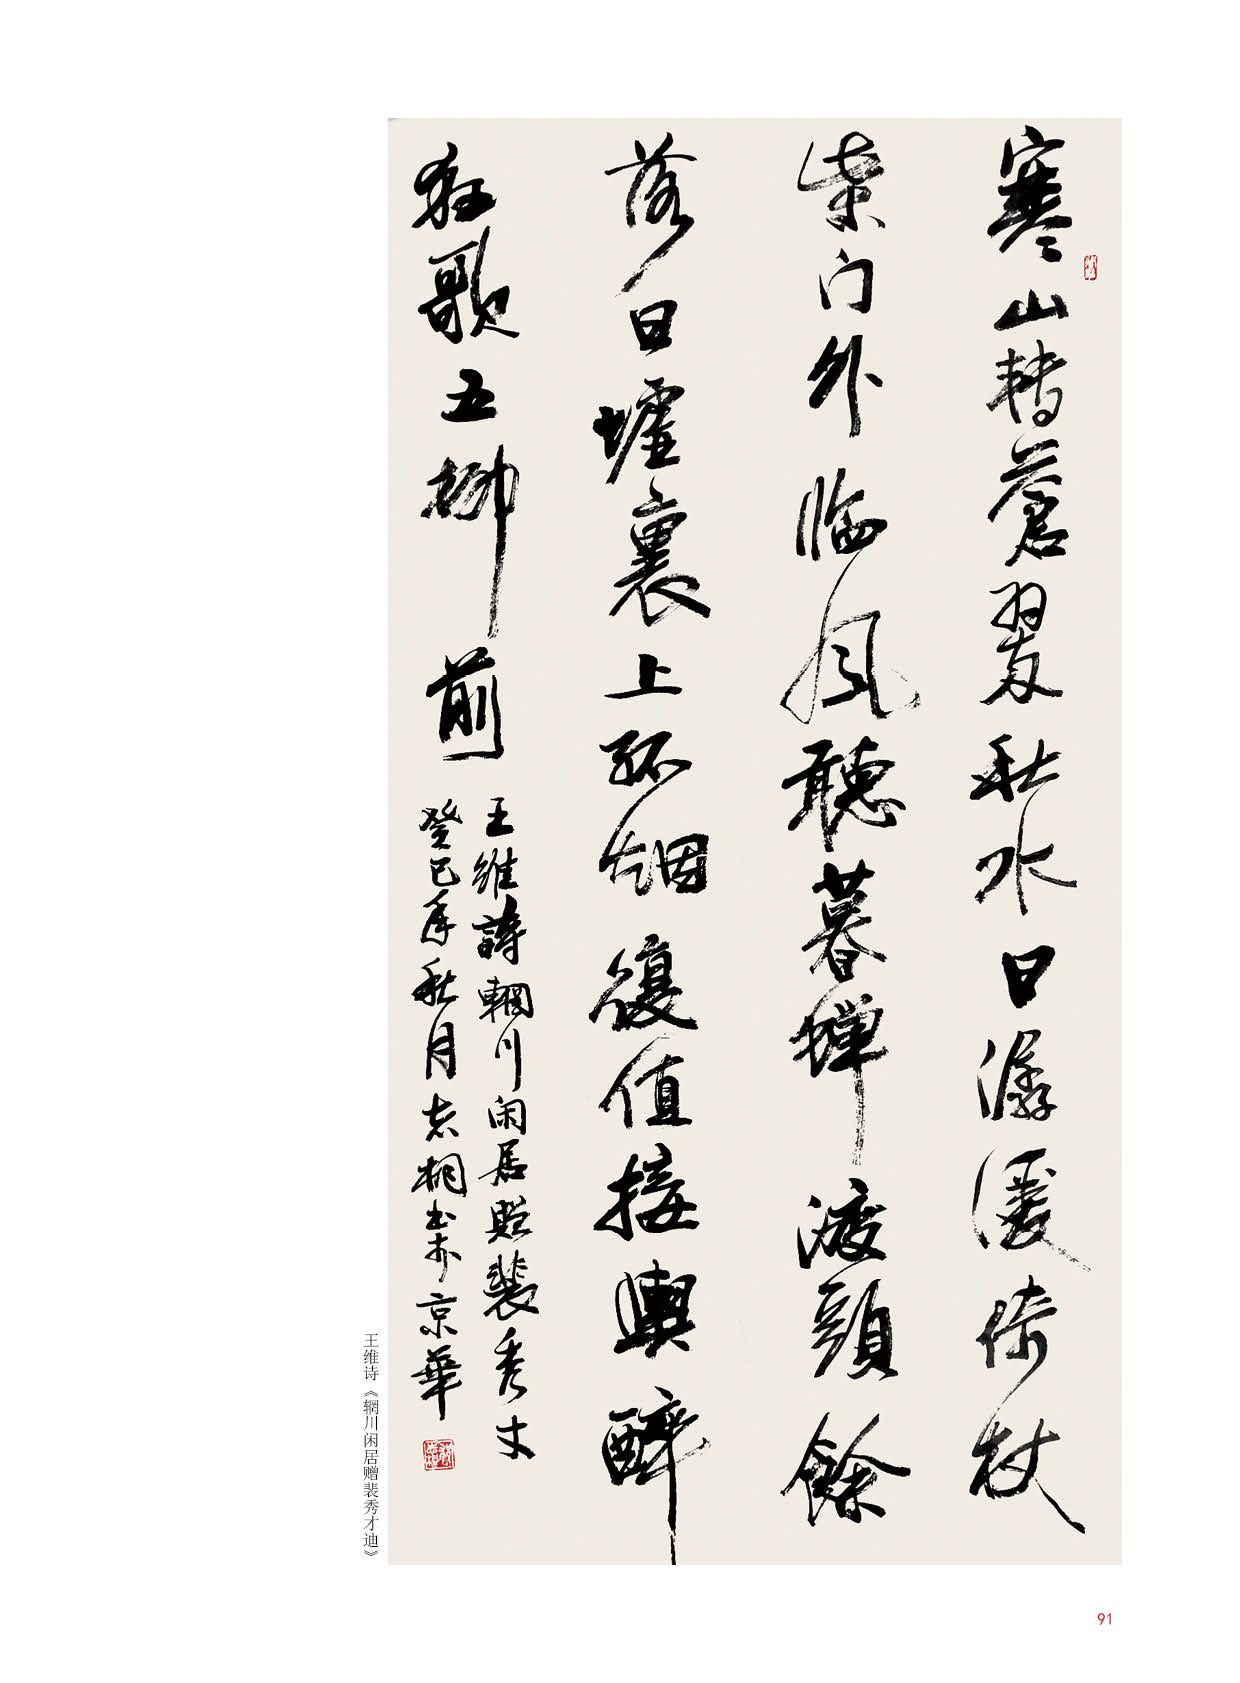 寒山轉蒼翠秋水日潺湲倚杖
柴门外临风聽暮蝉渡頭餘
落日墟裏上孤烟復值接輿醉
狂歌五柳前
王維詩輞川闲居贈裴秀才
癸巳年秋月志桐书於京華
王维诗《辋川闲居赠裴秀才迪》
91